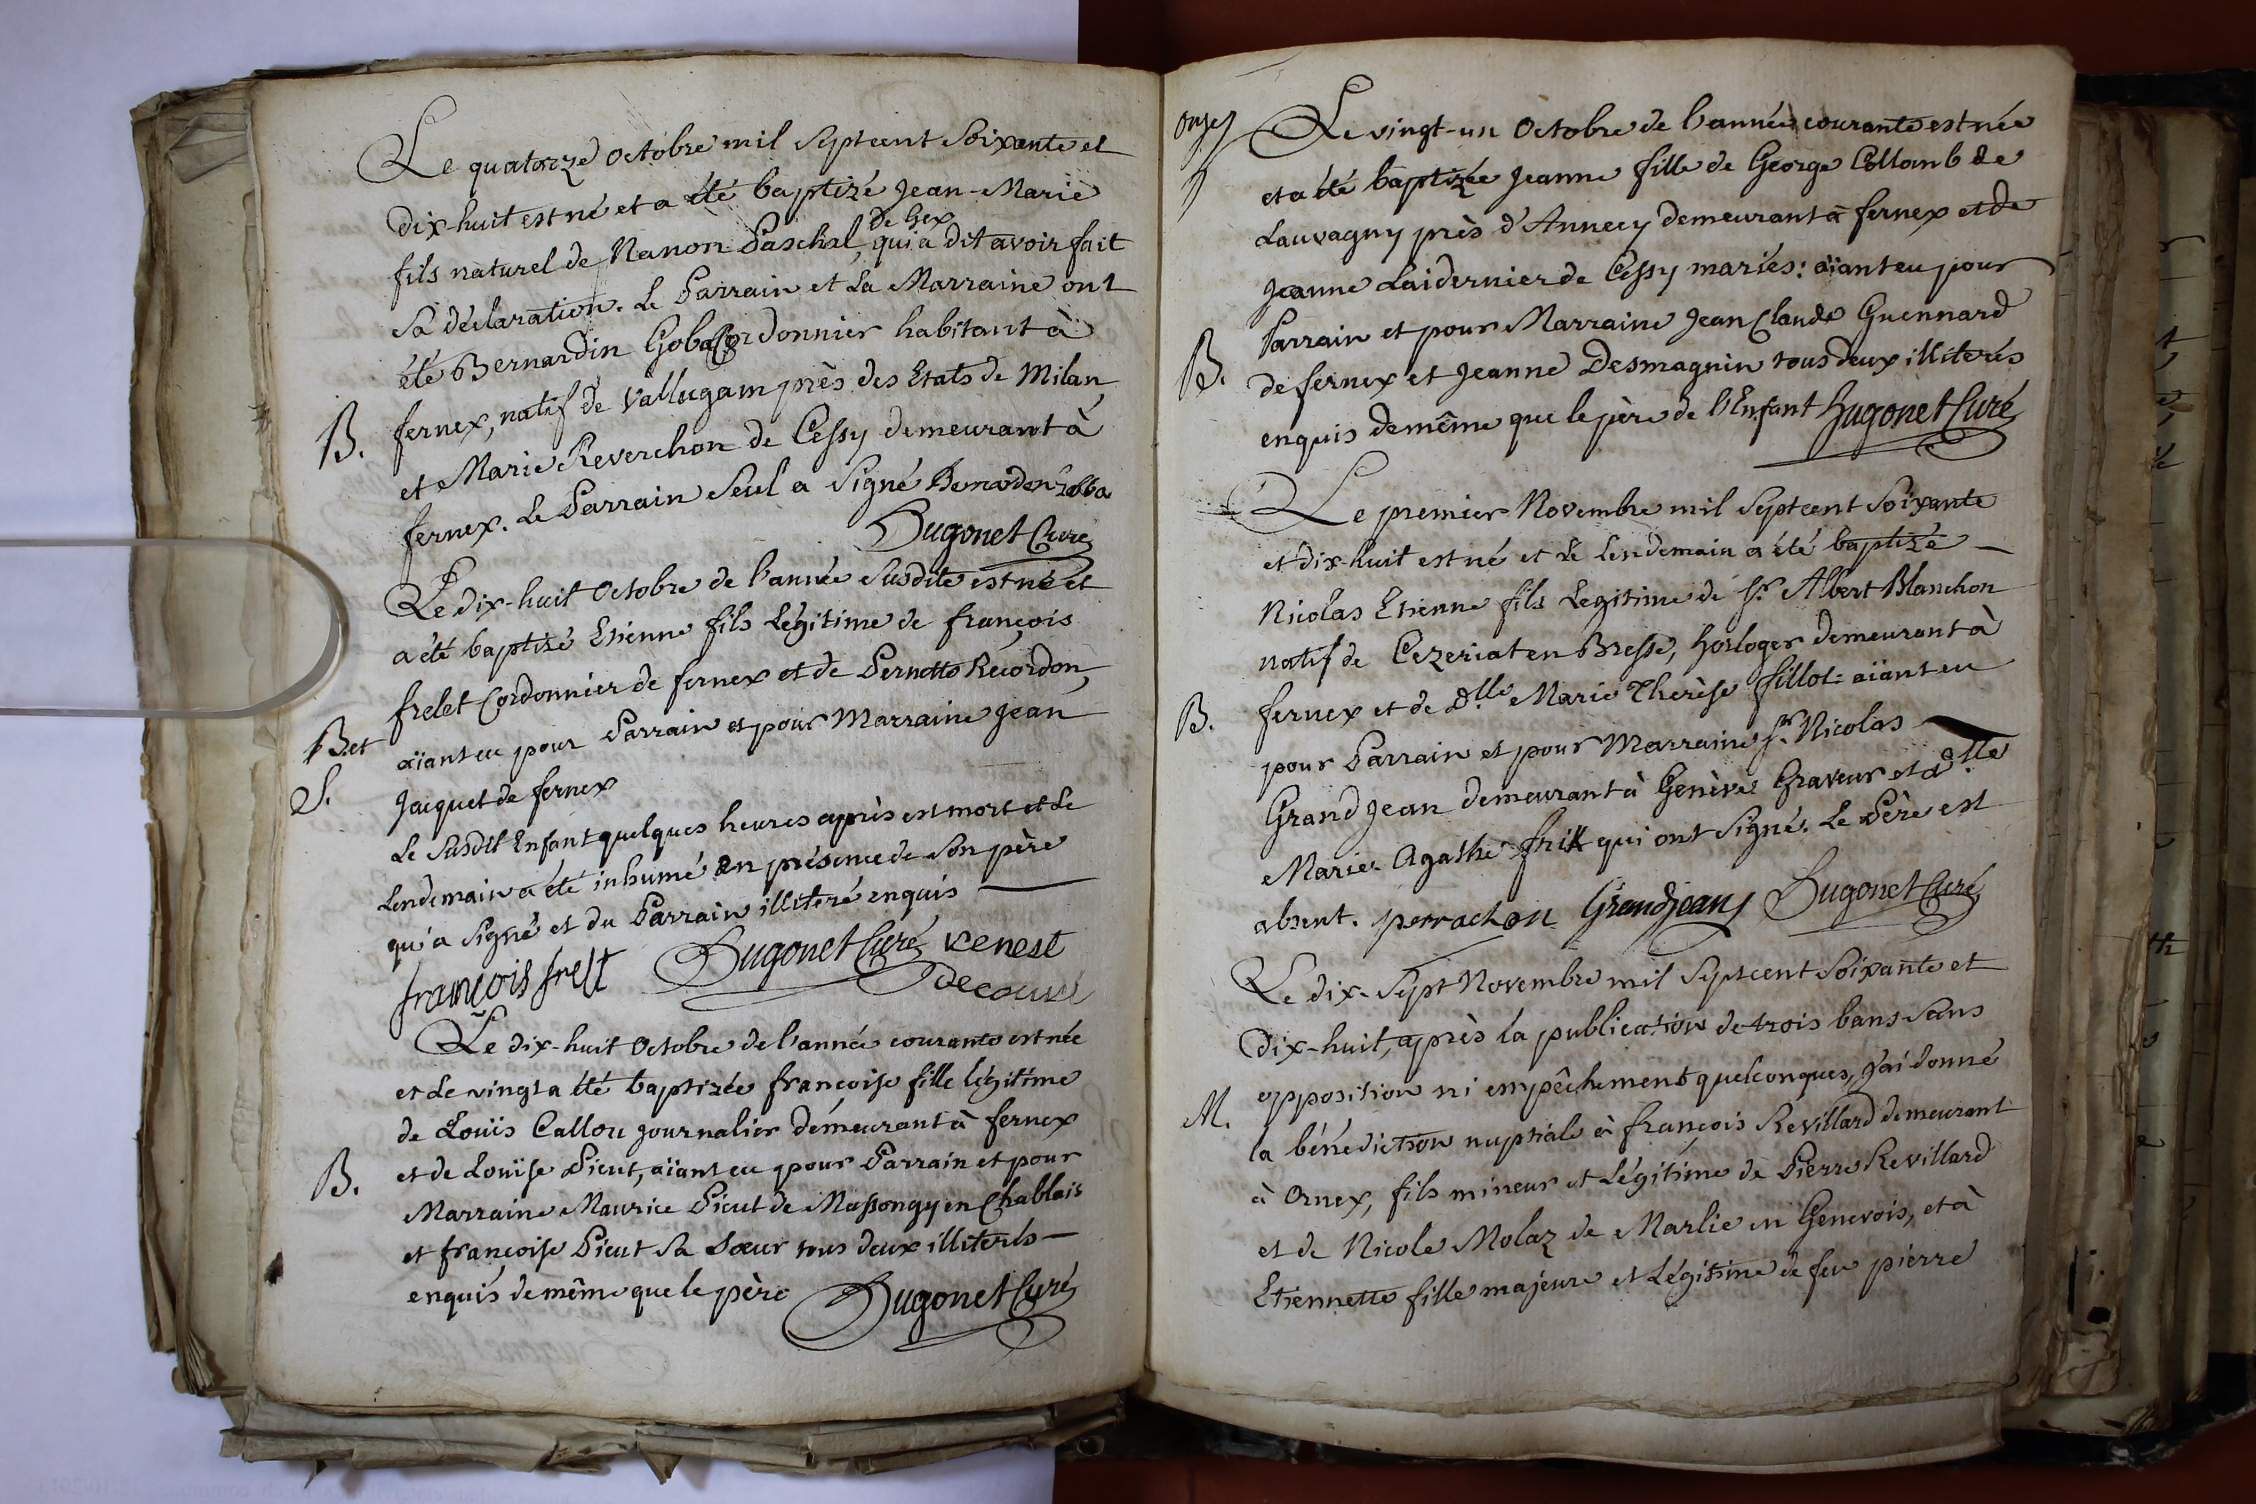 Le quatorze Octobre mil Septcent Soixante et
dix-huit est né et a été baptizé Jean-Marie
fils naturel de Nanon Paschal, de Gex qui a dit avoir fait
Sa déclaration. Le Parrain et La Marraine ont
été Bernardin Goba Cordonnier habitant à
B.
fernex, natif de Vallugam près des Etats de Milan,
et Marie Reverchon de Cessy demeurant à
fernex. Le Parrain Seul a Signé Bernarden
Hugonet Curé
Le dix-huit Octobre de l'année Susdite est né et
a été baptisé Etienne fils Légitime de françois
frelet Cordonnier de fernex et de Pernette Recordon,
B. et
S.
aïant eu pour Parrain et pour Marraine Jean
Jacquet de fernex
Le Susdit Enfant quelques heures après est mort et Le
Lendemain a été inhumé en présence de Son père
qui a Signé et du Parrain illiteré enquis
françois frelt Hugonet Curé
Le dix-huit Octobre de l'année courante est née
et Le vingt a été baptizée françoise fille légitime
de Louïs Callou journalier démeurant à fernex
B.
et de Louïse Picut, aïant eu pour Parrain et pour
Marraine Maurice Picut de Massongy en Chablais
et françoise Picut Sa Soeur tous deux illiterés
enquis de même que le père Hugonet Curé
onze
Le vingt-un Octobre de l'année courante est née
et a été baptizée Jeanne fille de George Collomb de
Lauvagny près d'Annecy demeurant à fernex et de
Jeanne Laidernier de Cessy mariés: aïant eu pour
Parrain et pour Marraine Jean Claude Guennard
B.
de fernex et Jeanne Desmagnin tous deux illiterés
enquis de même que le père de l'Enfant Hugonet Curé
Le premier Novembre mil Septcent Soixante
et dix-huit est né et le lendemain a été baptizé
Nicolas Etienne fils Legitime de Sr. Albert Blanchon
natif de Cezeriat en Bresse, horloger demeurant à
B.
fernex et de Dlle Marie Therèse fillot: aïant eu
pour Parrain et pour Marraine Sr. Nicolas
Grand Jean demeurant à Genève Graveur et dlle
Marie Agathe frik qui ont Signé. Le Père est
absent. perrachon Grandjean Hugonet Curé
Le dix-Sept Novembre mil Septcent Soixante et
Dix-huit, après la publication de trois bans Sans
opposition ni empêchement quelconques, j'ai donné
M.
la bénediction nuptiale à françois Revillard demeurant
à Ornex, fils mineur et Légitime de Pierre Revillard
et de Nicole Molaz de Marlie en Genevois, et à
Etiennette fille majeure et Légitime de feu pierre